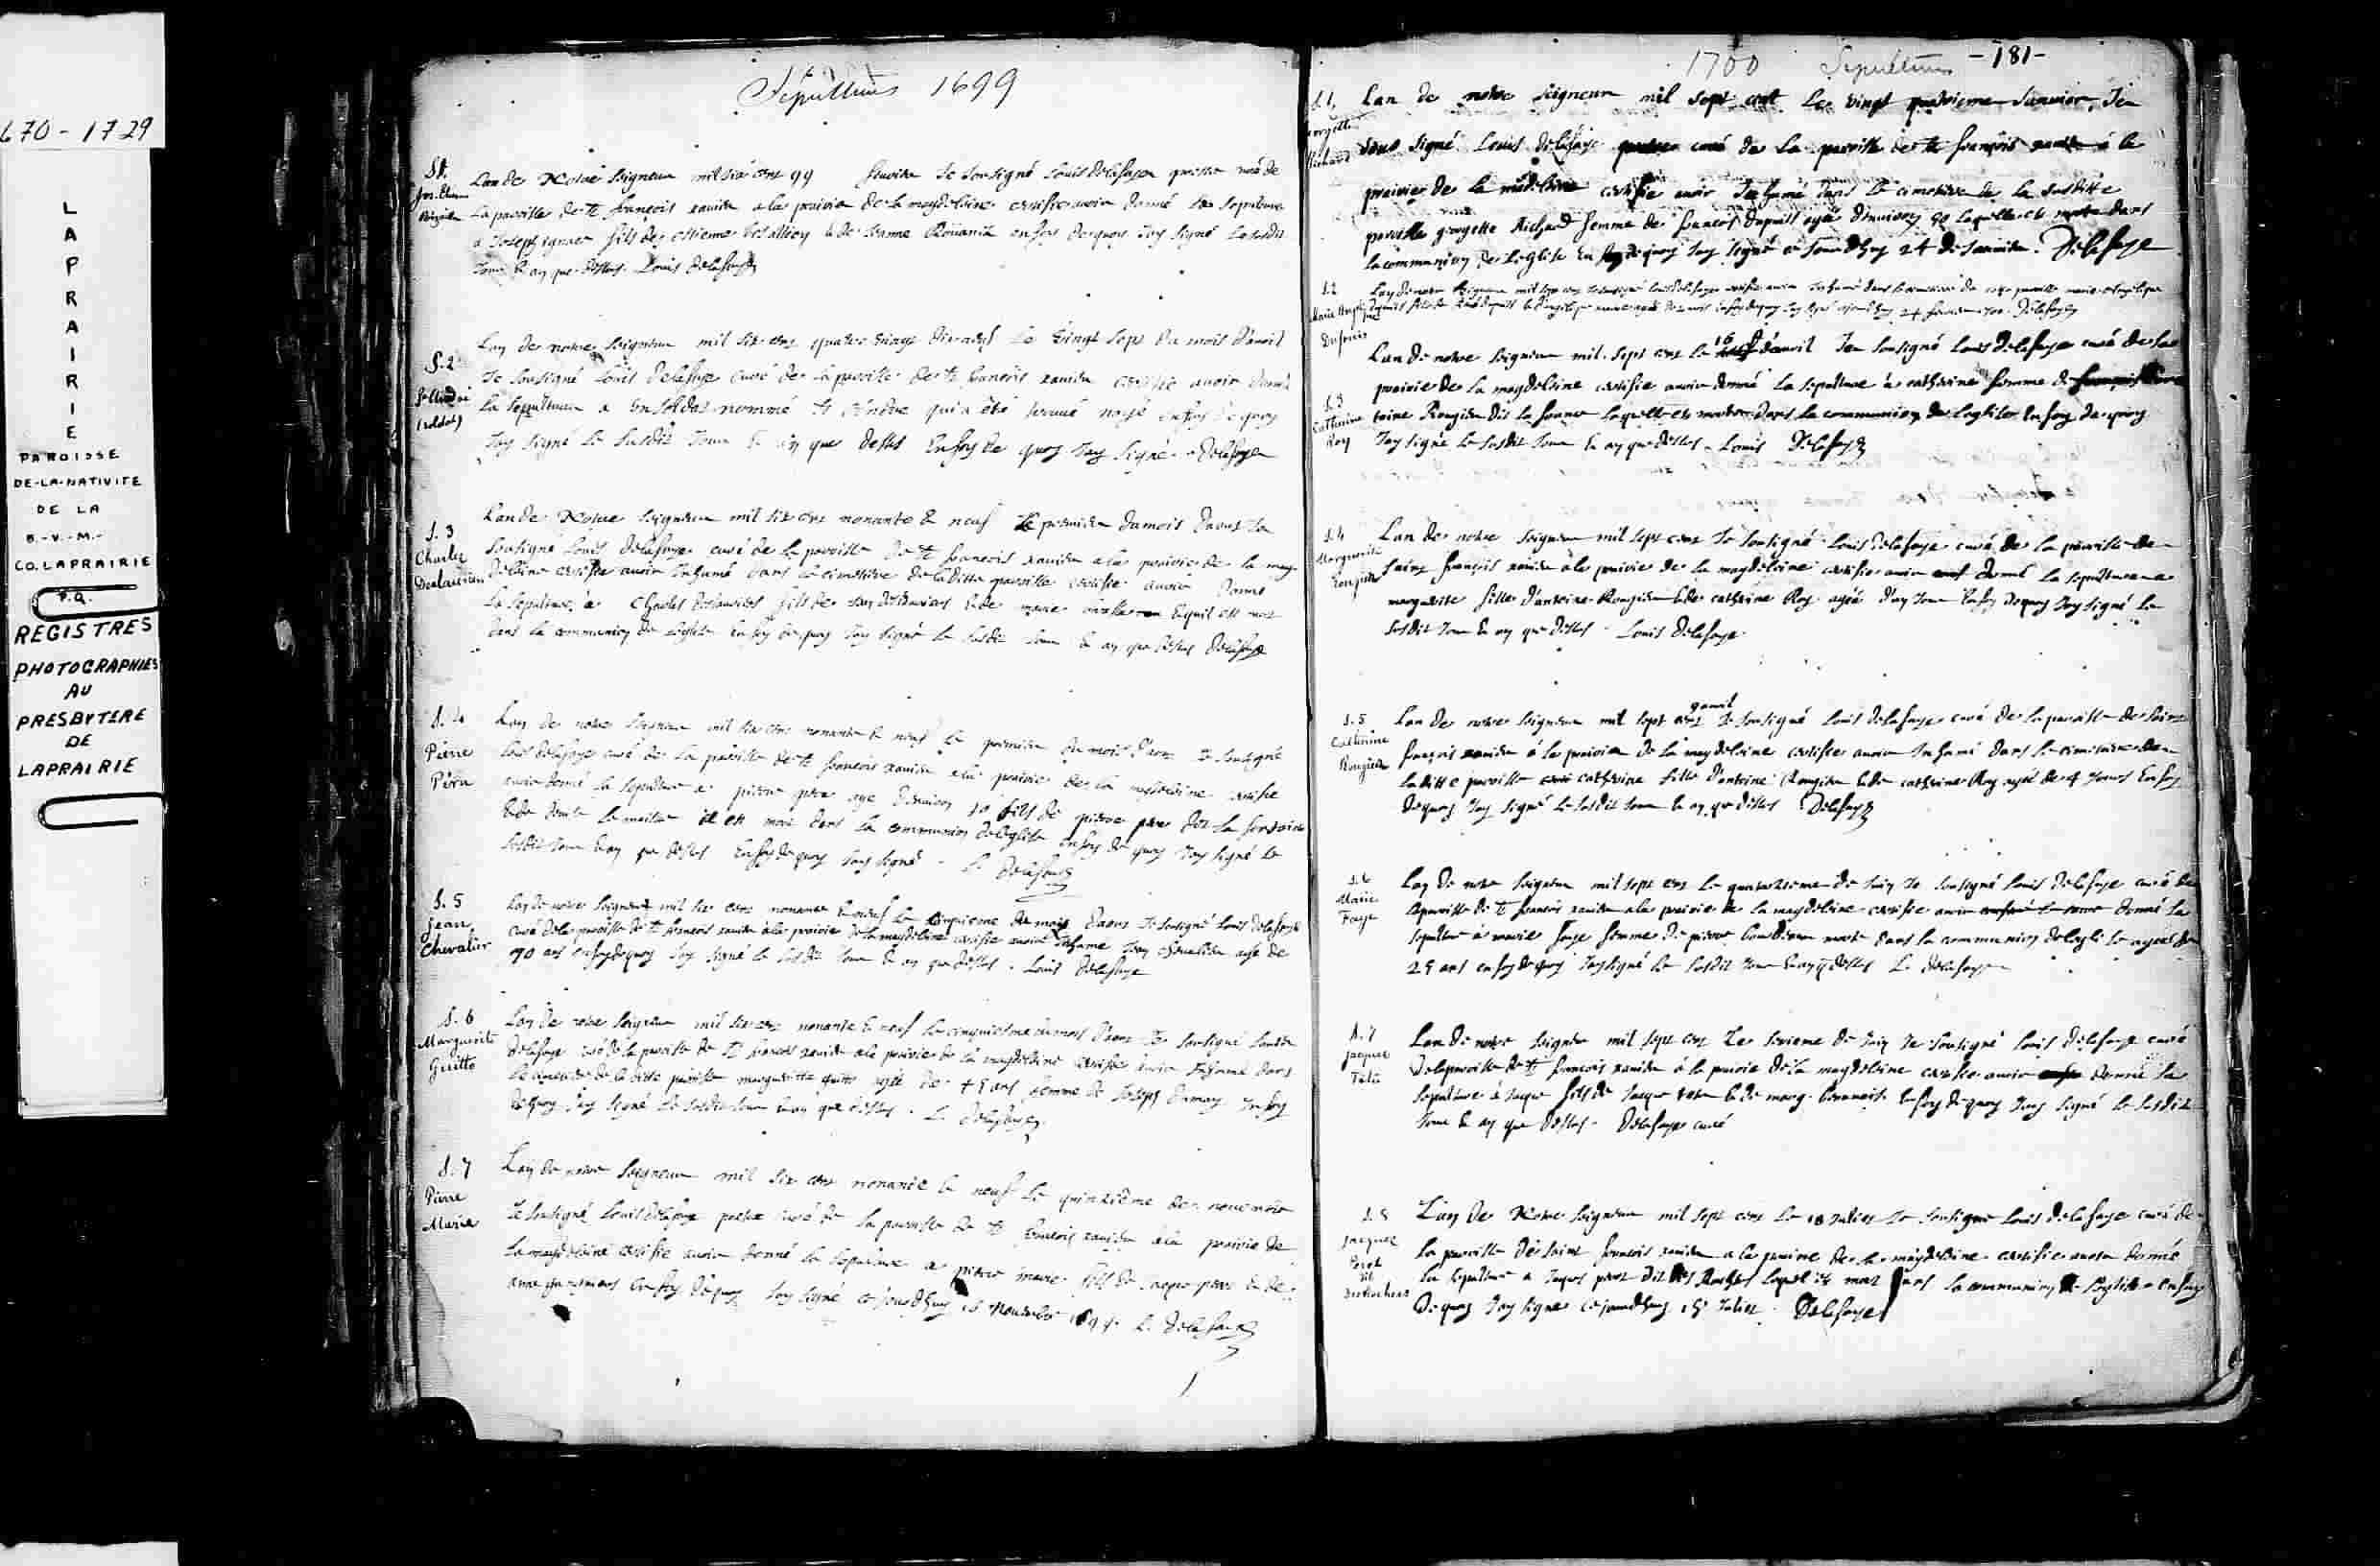 670 - 1729
LAPRAIRIE
PAROISSE
DE-LA-NATIVITE
DE LA
B.-V.-M.-
CO. LAPRAIRIE
P.Q.
REGISTRES
PHOTOGRAPHIES
AU
PRESBYTERE
DE
LAPRAIRIE
Sepultures 1699
S1.
Lan de Notre Seigneur mil six cens 99 feuvrier Je sousigné Louis Delafaye prestre curé de
La paroisse de St francois xauier a la prairie de la magdeleine certifie auoir donné la sepulture
a Joseph ignace fils de estienne et de Jeanne en foy de quoy Jay signé le susdit
Jour & an que dessus. Louis Delafaye
S.2
St André
(soldat)
Lan de notre Seigneur mil six cens quatre vingt dix neuf le vingt sept du mois d'auril
Je sousigné Louis Delafaye curé de la paroisse de St francois xauier certifie auoir donné
la sepulture a un soldat nommé St Andre qui a été trouué noyé en foy de quoy
Jay signé le susdit Jour & an que dessus En foy de quoy Jay signé. Delafaye
S.3
Charles
Deslauriers
Lan de Notre Seigneur mil six cens nonante & neuf le premier du mois daoust Je
sousigné Louis Delafaye curé de la paroisse de St francois xauier a la prairie de la mag
deleine certifie auoir Inhumé dans le cimetière de laditte paroisse certifie auoir donné
la sepulture a Charles deslauriers fils de deslauriers & de marie & quil est mort
dans la communion de leglise En foy de quoy Jay signé le susdit Jour & an que dessus Delafaye
S.4
Pierre
Péra
Lan de notre Seigneur mil six cens nonante & neuf le premier du mois d'aoust Je sousigné
Louis Delafaye curé de la paroisse de St francois xauier a la prairie de la magdeleine certifie
auoir donné la sepulture a pierre pera agé denuiron 30 fils de pierre pera dit la fontaine
& de denise lemaitre il est mort dans la communion de leglise en foy de quoy Jay signé le
susdit Jour & an que dessus En foy de quoy Jay signé. L. Delafaye
S.5
Jean
Chevalier
Lan de notre Seigneur mil six cens nonante & neuf le cinquieme du mois daoust Je sousigné Louis Delafaye
curé de la paroisse de St francois xauier a la prairie de la magdeleine certifie auoir Inhumé Jean cheualier agé de
70 ans en foy de quoy Jay signé le susdit Jour & an que dessus. Louis Delafaye
S.6
Marguerite
Guitte
Lan de notre Seigneur mil six cens nonante & neuf le cinquiesme du mois daoust Je sousigné Louis
Delafaye curé de la paroisse de St francois xauier a la prairie de la magdeleine certifie auoir Inhumé dans
le cimetiere de laditte paroisse margueritte guitte agée de 45 ans femme de Joseph dumay En foy
de quoy Jay signé le susdit Jour & an que dessus. L. Delafaye
S.7
Pierre
Marie
Lan de notre Seigneur mil six cens nonante & neuf le quinzième de nouembre
Je sousigné Louis Delafaye prestre curé de la paroisse de St francois xauier a la prairie de
la magdeleine certifie auoir donné la sepulture a pierre marie fils de & de
en foy de quoy Jay signé ce jourdhuy 15 Nouembre 1699. L. Delafaye
1700 Sepultures -181-
S.1.
georgette
Richard
Lan de notre Seigneur mil sept cent Le vingt quatrieme Januier, Je
sous signé Louis Delafaye curé de La paroisse de St françois xauier a la
prairie de la madeleine certifie auoir Inhumé dans le cimetiere de la susditte
paroisse georgette Richard femme de francois Dupuist agée d'enuiron 90 laquelle est morte dans
la communion de LeGlise En foy de quoy Jay signé ce Jourdhuy 24 de Januier. Delafaye
S.2
Marie Angelique
Dupuis
Lan de notre Seigneur mil sept cens Je sousigné Louis Delafaye certifie auoir Inhumé dans le cimetiere de cette paroisse marie angelique
24 feurier 1700. Delafaye
S.3
Catherine
Roy
Lan de notre Seigneur mil sept cens le 16 dauril Je sousigné Louis Delafaye curé de la
prairie de la magdeleine certifie auoir donné la sepulture a catherine femme de
toine Rougier dit la laquelle est morte dans la communion de leglise En foy de quoy
Jay signé le susdit Jour & an que dessus. Louis Delafaye
S.4
Marguerite
Rougier
Lan de notre Seigneur mil sept cens Je sousigné Louis Delafaye curé de la paroisse de
saint françois xauier a la prairie de la magdeleine certifie auoir donné la sepulture a
marguerite fille d'antoine Rougier & de catherine Roy agée d'un Jour En foy de quoy Jay signé le
susdit Jour & an que dessus. Louis Delafaye.
S.5
Catherine
Rougier
Lan de notre Seigneur mil sept cens 9 auril Je sousigné Louis Delafaye curé de la paroisse de saint
françois xauier a la prairie de la magdeleine certifie auoir Inhumé dans le cimetiere de
laditte paroisse catherine fille d'antoine Rougier & de catherine Roy agée de 4 Jours En foy
de quoy Jay signé le susdit Jour & an que dessus Delafaye
S.6
Marie
Faye
Lan de notre Seigneur mil sept cens le quatorzieme de Juin Je sousigné Louis Delafaye curé de
la paroisse de St francois xauier a la prairie de la magdeleine certifie auoir donné la
sepulture a marie faye femme de pierre morte dans la communion de leglise agée de
25 ans en foy de quoy Jay signé le susdit Jour & an q dessus L. Delafaye
S.7
Jacques
Tetu
Lan de notre Seigneur mil sept cens Le sixieme de Juin Je sousigné Louis Delafaye curé
de la paroisse de St francois xauier a la prairie de la magdeleine certifie auoir donné la
sepulture a Jaque fils de Jaque & de marg. En foy de quoy Jay signé le susdit
Jour & an que dessus. Delafaye curé
S.8
Jacques
Perot
dit
Desrochers
L'an de Notre Seigneur mil sept cens le 18 Juliet Je sousigné Louis Delafaye curé de
la paroisse de saint francois xauier a la prairie de la magdeleine certifie auoir donné
la sepulture a Jaques perot dit des Rochers lequel est mort dans la communion de leglise en foy
de quoy Jay signé ce jourdhuy 18 Juliet. Delafaye